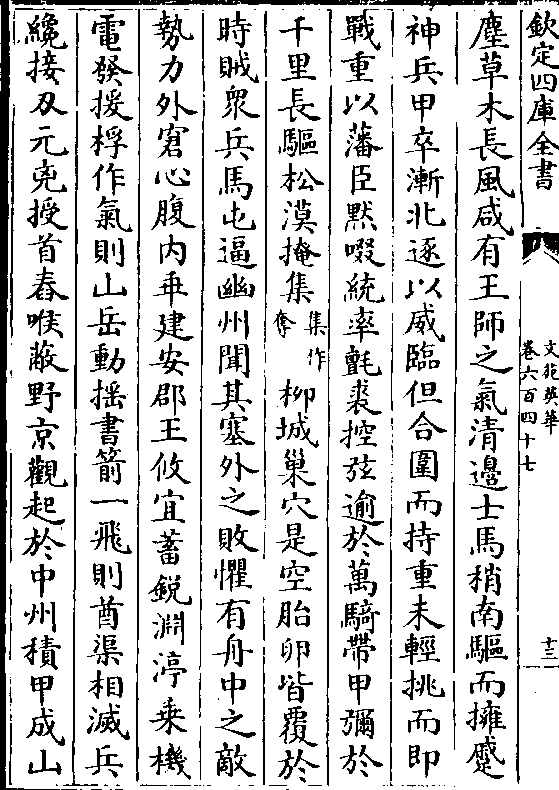 欽定四庫全書
文苑英華
卷六百四十七
十三
塵草木長風咸有王師之氣清邊士馬稍南驅而擁蹙
神兵甲卒漸北逐以威臨但合圍而持重未輕挑而即
戰重以藩臣黙啜統率氈裘控弦逾於萬騎帶甲彌於
千里長驅松漠掩集集作奪柳城巢穴是空胎卵皆覆於
時賊衆兵馬屯逼幽州聞其塞外之敗懼有舟中之敵
勢力外窘心腹内乖建安郡王攸宜蓄鋭淵渟乗機
電發援桴作氣則山岳動揺書箭一飛則酋渠相滅兵
纔接刄元兇授首舂喉蔽野京觀起於中州積甲成山